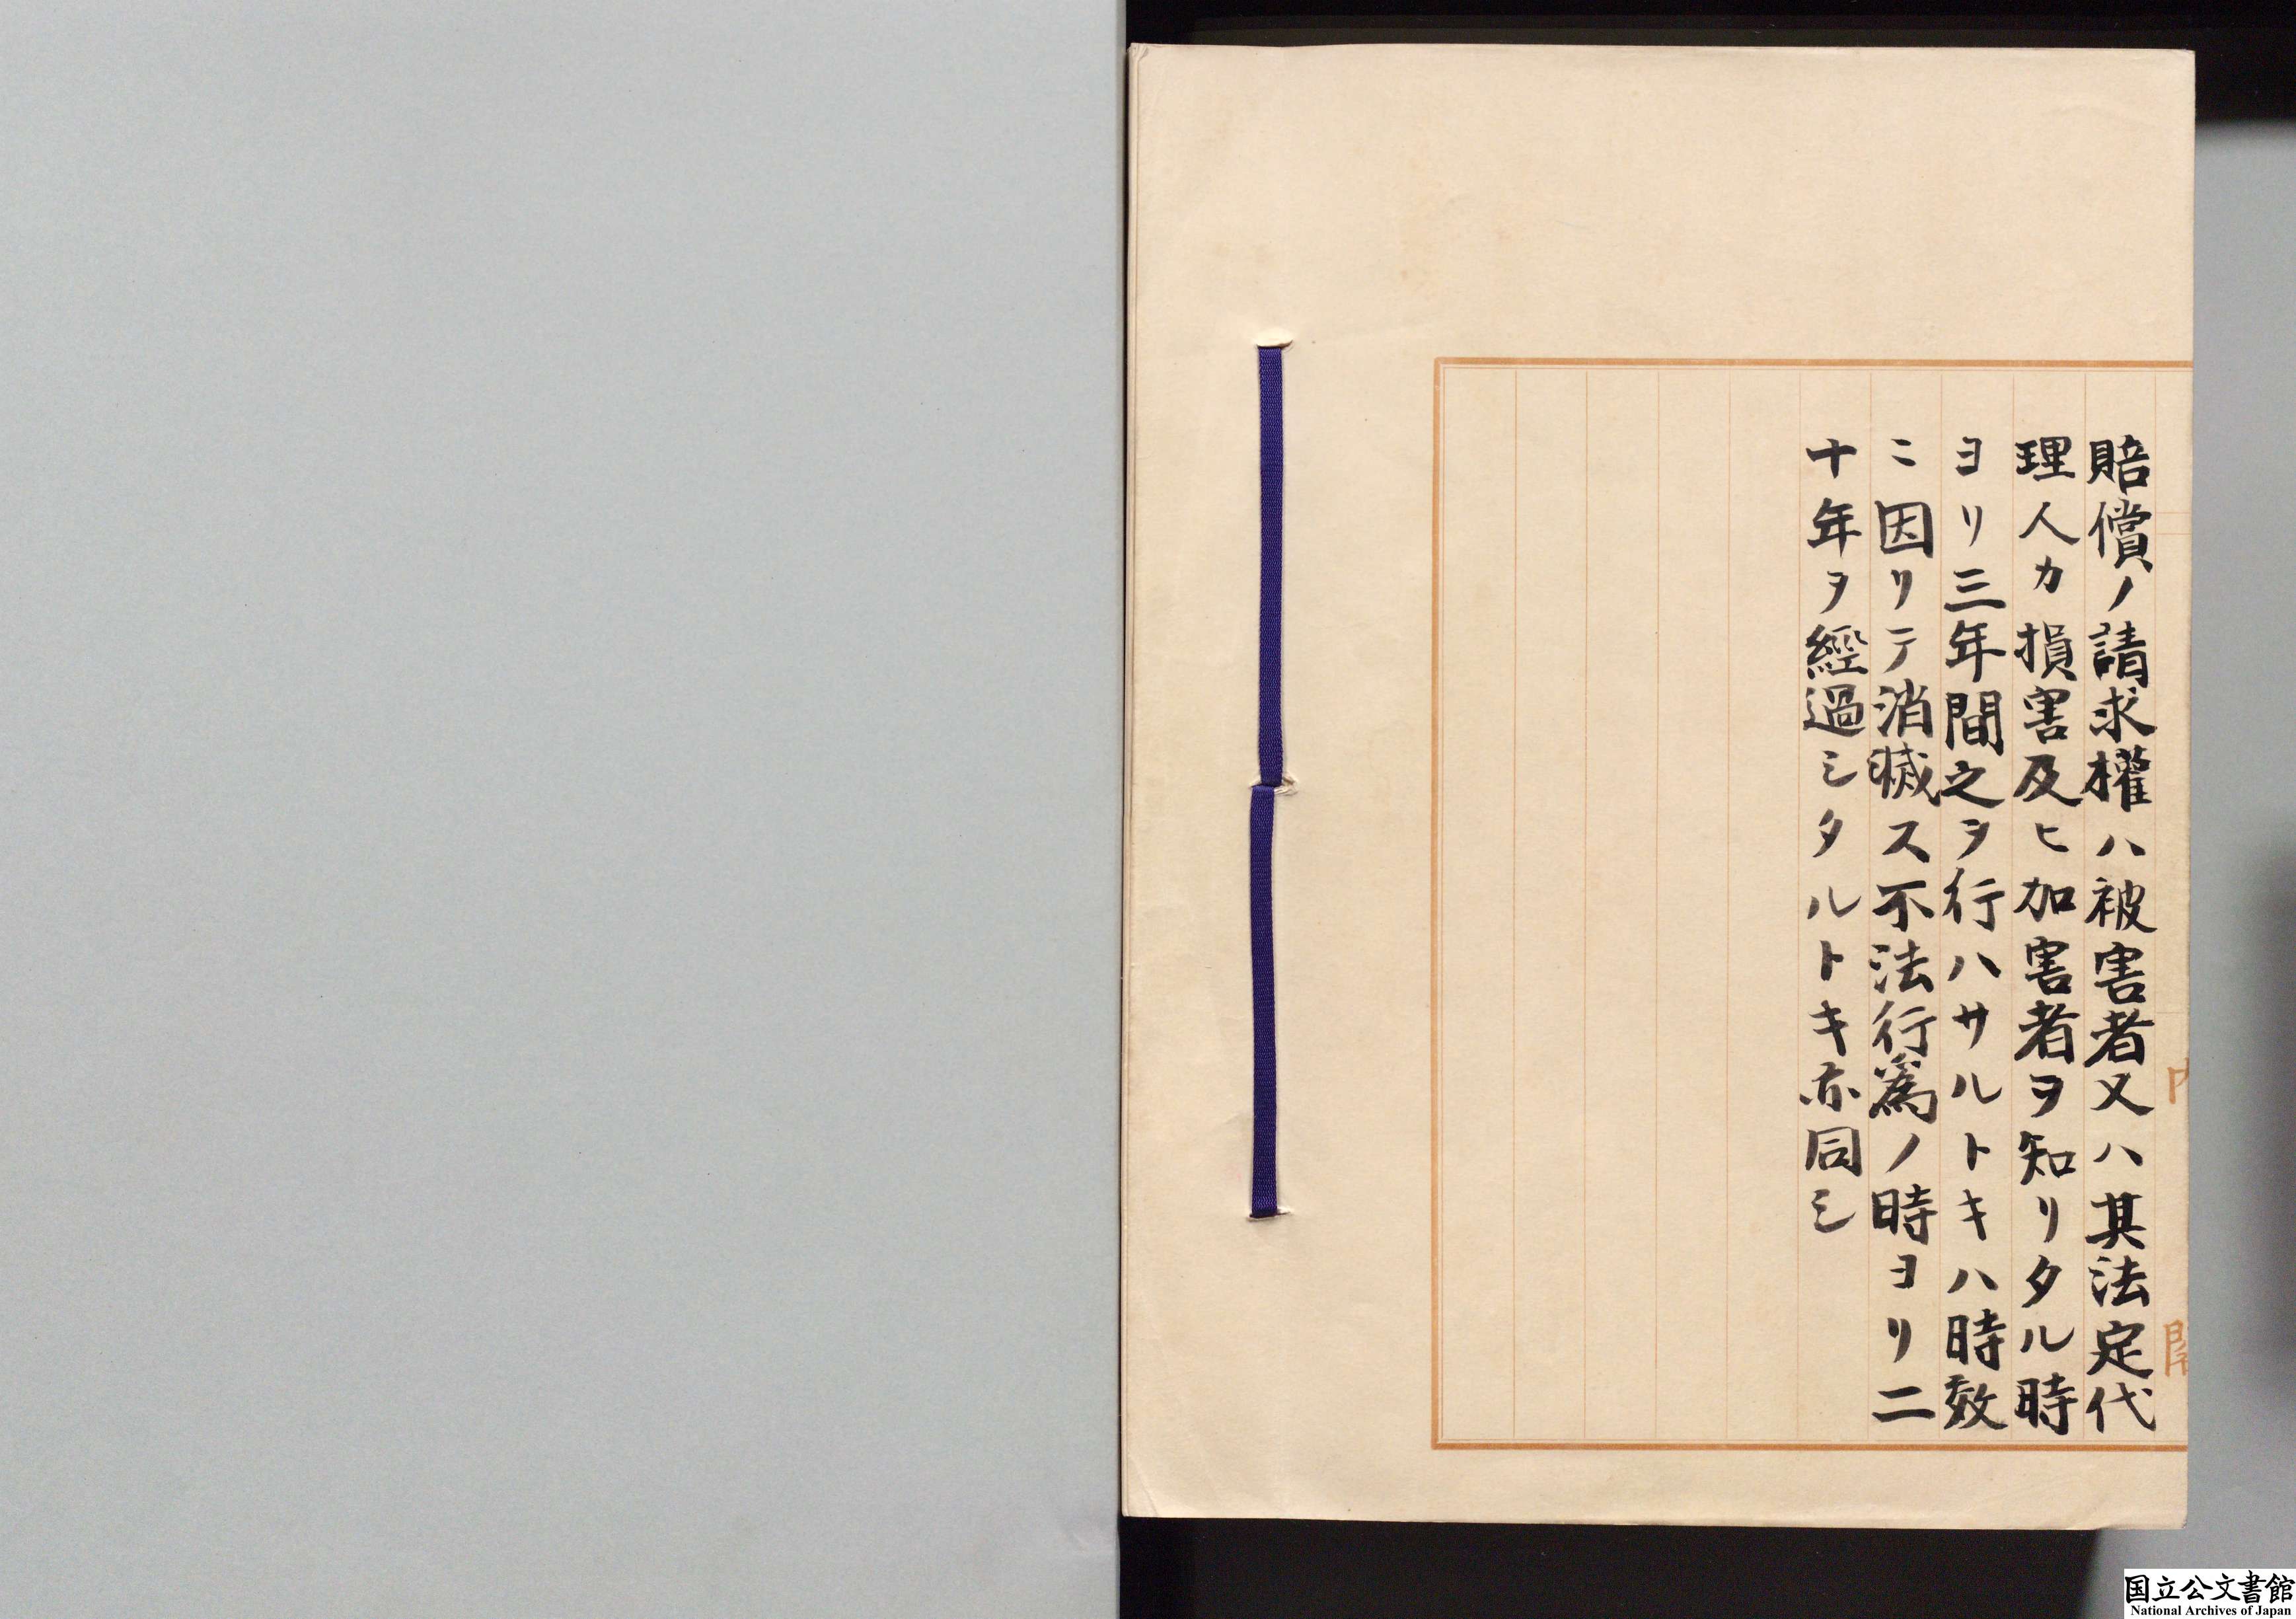 賠償ノ請求權ハ被害者又ハ其法定代
理人カ損害及ヒ加害者ヲ知リタル時
ヨリ三年間之ヲ行ハサルトキハ時效
ニ因リテ消滅ス不法行爲ノ時ヨリ二
十年ヲ經過シタルトキ亦同シ
国立公文書館
National Archives of Japan